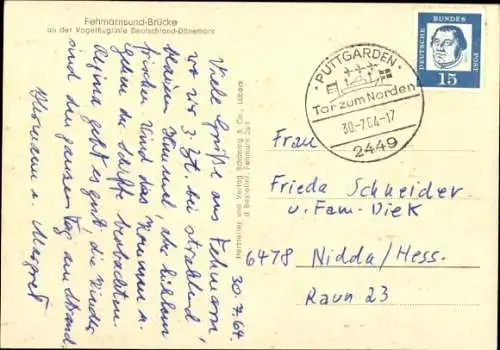 Fehmarnsund-Brücke
an der Vogelfluglinie Deutschland-Dänemark
30.7.64.
Viele Grüße aus Fehmarn,
wo wir z. Zt. bei strahlend
blauem Himmel, der kühlem
frischen Wind das Kommen u.
Gehen der Schiffe beobachten.
geht es gut, die Kinder
sind den ganzen Tag am Strand.
Hermann u. Margret
Hersteller und Verlag Schöning & Co., Lübeck
Bestellnr. Fehmarn 264
DEUTSCHE BUNDES POST
15
PUTTGARDEN
Tor zum Norden
30.-7.64-17
2449
Frau
Frieda Schneider
u. Fam. Diek
6478 Nidda/Hess.
Raun 23